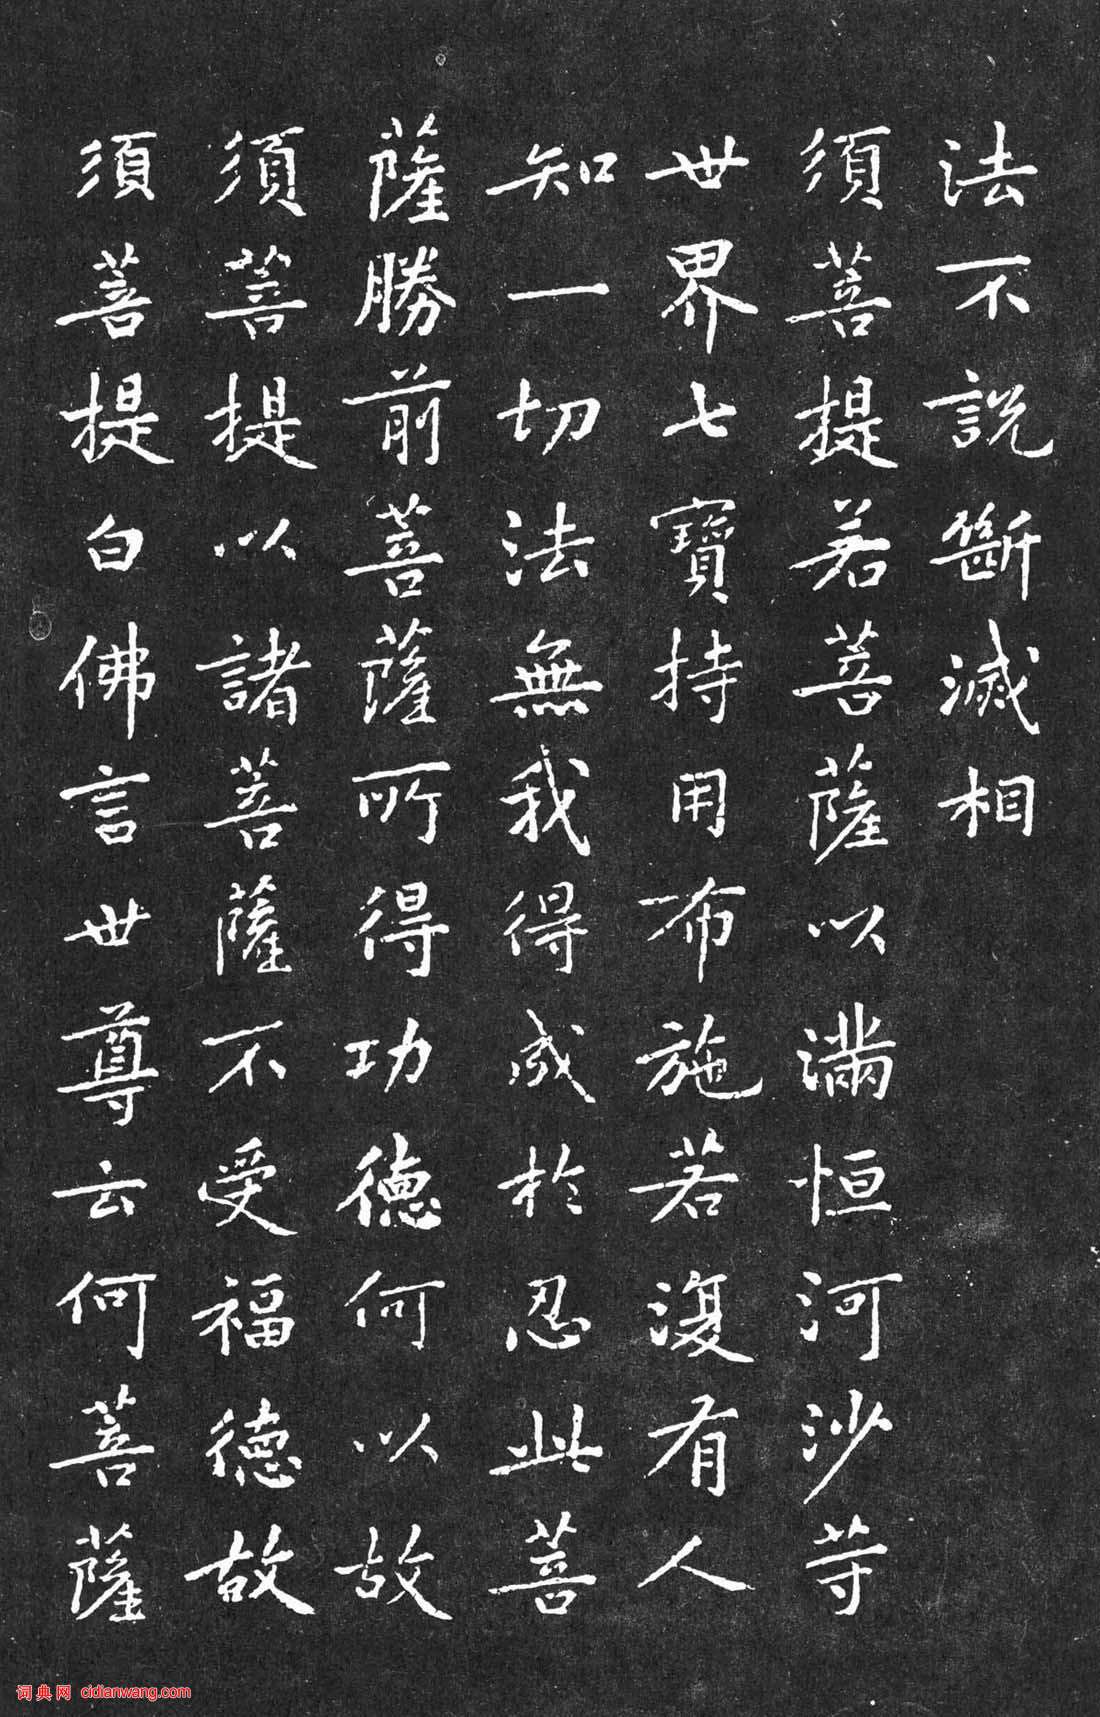 法不說斷滅相
須菩提若菩薩以滿恒河沙等
世界七寶持用布施若復有人
知一切法無我得成於忍此菩
薩勝前菩薩所得功德何以故
須菩提以諸菩薩不受福德故
須菩提白佛言世尊云何菩薩
词典网 cidianwang.com